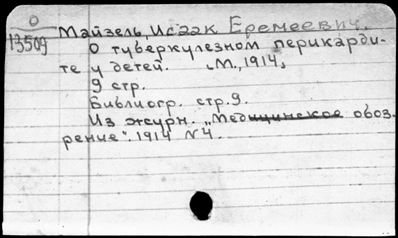 О
13509
Майзель, Исаак Еремеевич.
О туберкулезном перикарди-
те у детей. [М., 1914]
9 стр.
Библиогр. стр. 9.
Из журн. „Медицинское обоз-
рение". 1914 N 4.